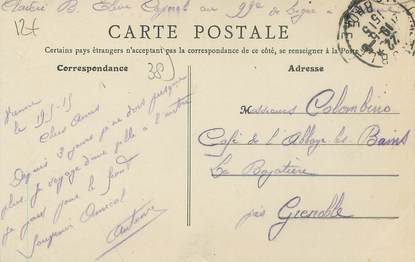 au 99e de Ligne
12f
CARTE POSTALE
Certains pays étrangers n'acceptant pas la correspondance de ce côté, se renseigner à la Poste
Correspondance
38
Adresse
Vienne
le 19-5-15
Chers Amis
Depuis 3 jours je ne dors presque
plus je voyage d'une ville à l'autre
je pars pour le front
Souvenir Amical
Antoine
Messieurs Colombino
Café de l'Abbaye les Bains
La Bajatière
près Grenoble